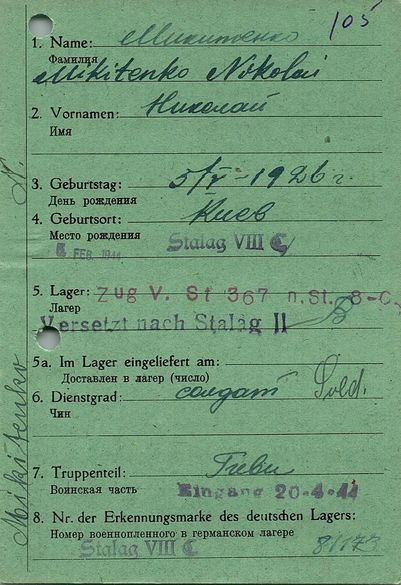 105
1. Name: Микитенко
Фамилия
Mikitenko Nikolai
2. Vornamen: Николай
Имя
3. Geburtstag: 5/V-1926 г.
День рождения
4. Geburtsort: Киев
Место рождения
FEB. 1944 Stalag VIII C
5. Lager: Zug V. St 367 n. St. 8-C.
Лагерь
Versetzt nach Stalag II B
5a. Im Lager eingeliefert am:
Доставлен в лагерь (число)
6. Dienstgrad: солдат Sold.
Чин
7. Truppenteil:
Воинская часть Eingang 20-4-44
8. Nr. der Erkennungsmarke des deutschen Lagers:
Номер военнопленного в германском лагере
Stalag VIII C
Mikitenko N.